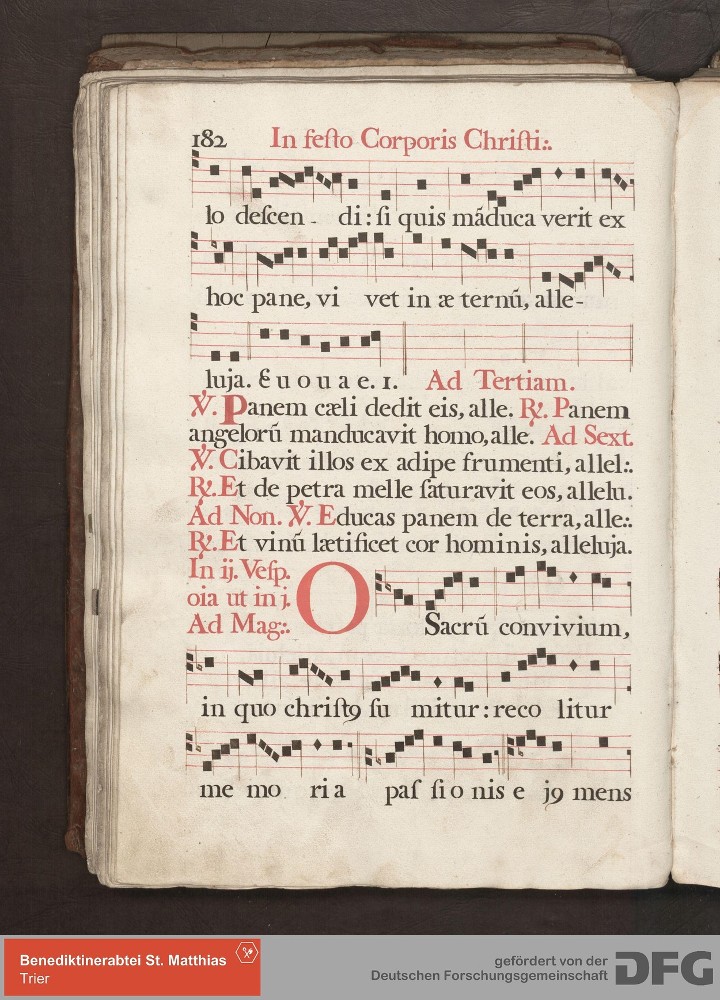 182 In festo Corporis Christi:.
lo descen - di: si quis mãduca verit ex
hoc pane, vi vet in æ ternũ, alle-
luja. E u o u a e. 1. Ad Tertiam.
℣. Panem cæli dedit eis, alle. ℟. Panem
angelorũ manducavit homo, alle. Ad Sext.
℣. Cibavit illos ex adipe frumenti, allel:.
℟. Et de petra melle saturavit eos, allelu.
Ad Non. ℣. Educas panem de terra, alle:.
℟. Et vinũ lætificet cor hominis, alleluja.
In ij. Vesp.
oia ut in j.
Ad Mag:.
O Sacrũ convivium,
in quo christꝯ su mitur: reco litur
me mo ri a pas si o nis e jꝯ mens
Benediktinerabtei St. Matthias
Trier
gefördert von der
Deutschen Forschungsgemeinschaft DFG